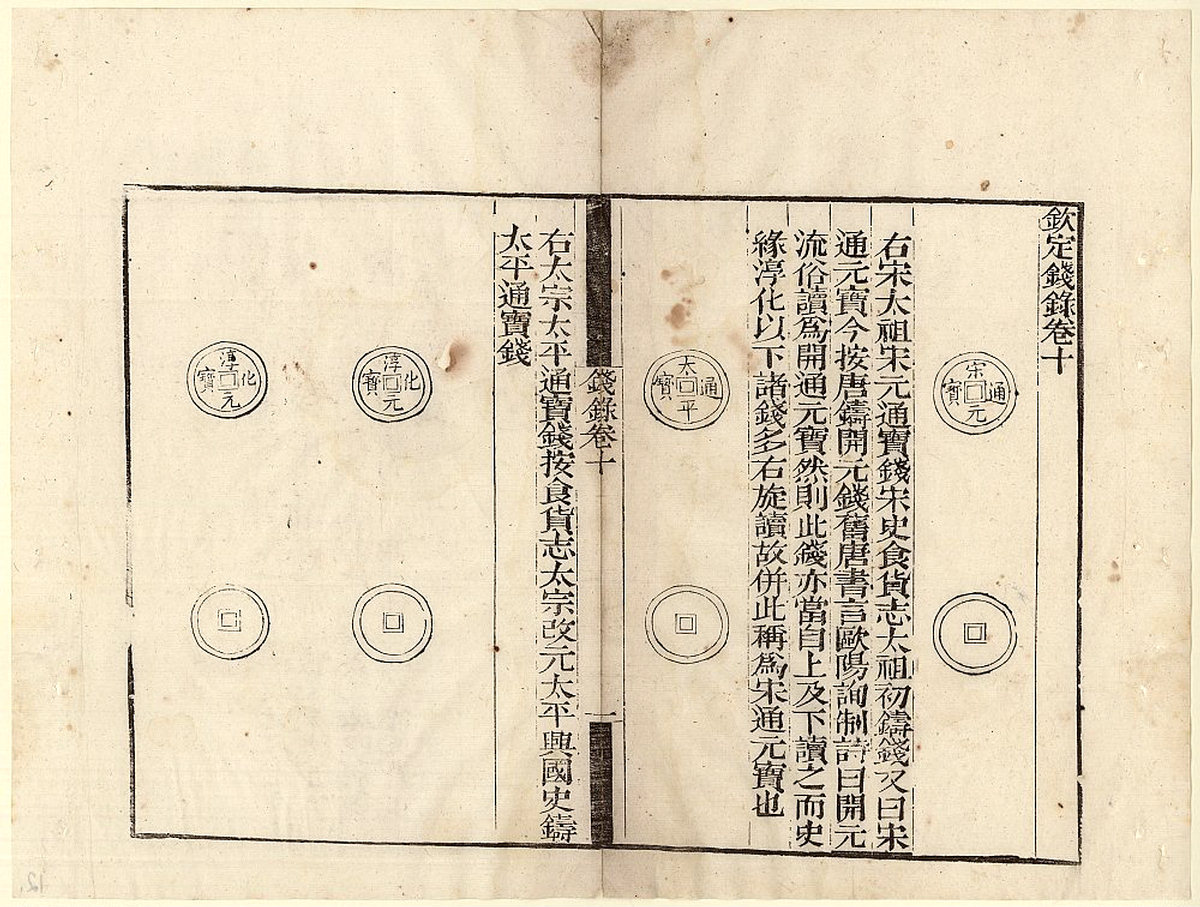 欽定錢錄卷十
宋元通寶
右宋太祖宋元通寶錢宋史食貨志太祖初鑄錢文曰宋
通元寶今按唐鑄開元錢舊唐書言歐陽詢制詩曰開元
流俗讀爲開通元寶然則此錢亦當自上及下讀之而史
緣淳化以下諸錢多右旋讀故併此稱爲宋通元寶也
太平通寶
錢錄卷十
一
右太宗太平通寶錢按食貨志太宗改元太平興國更鑄
太平通寶錢
淳化元寶
淳化元寶
12.